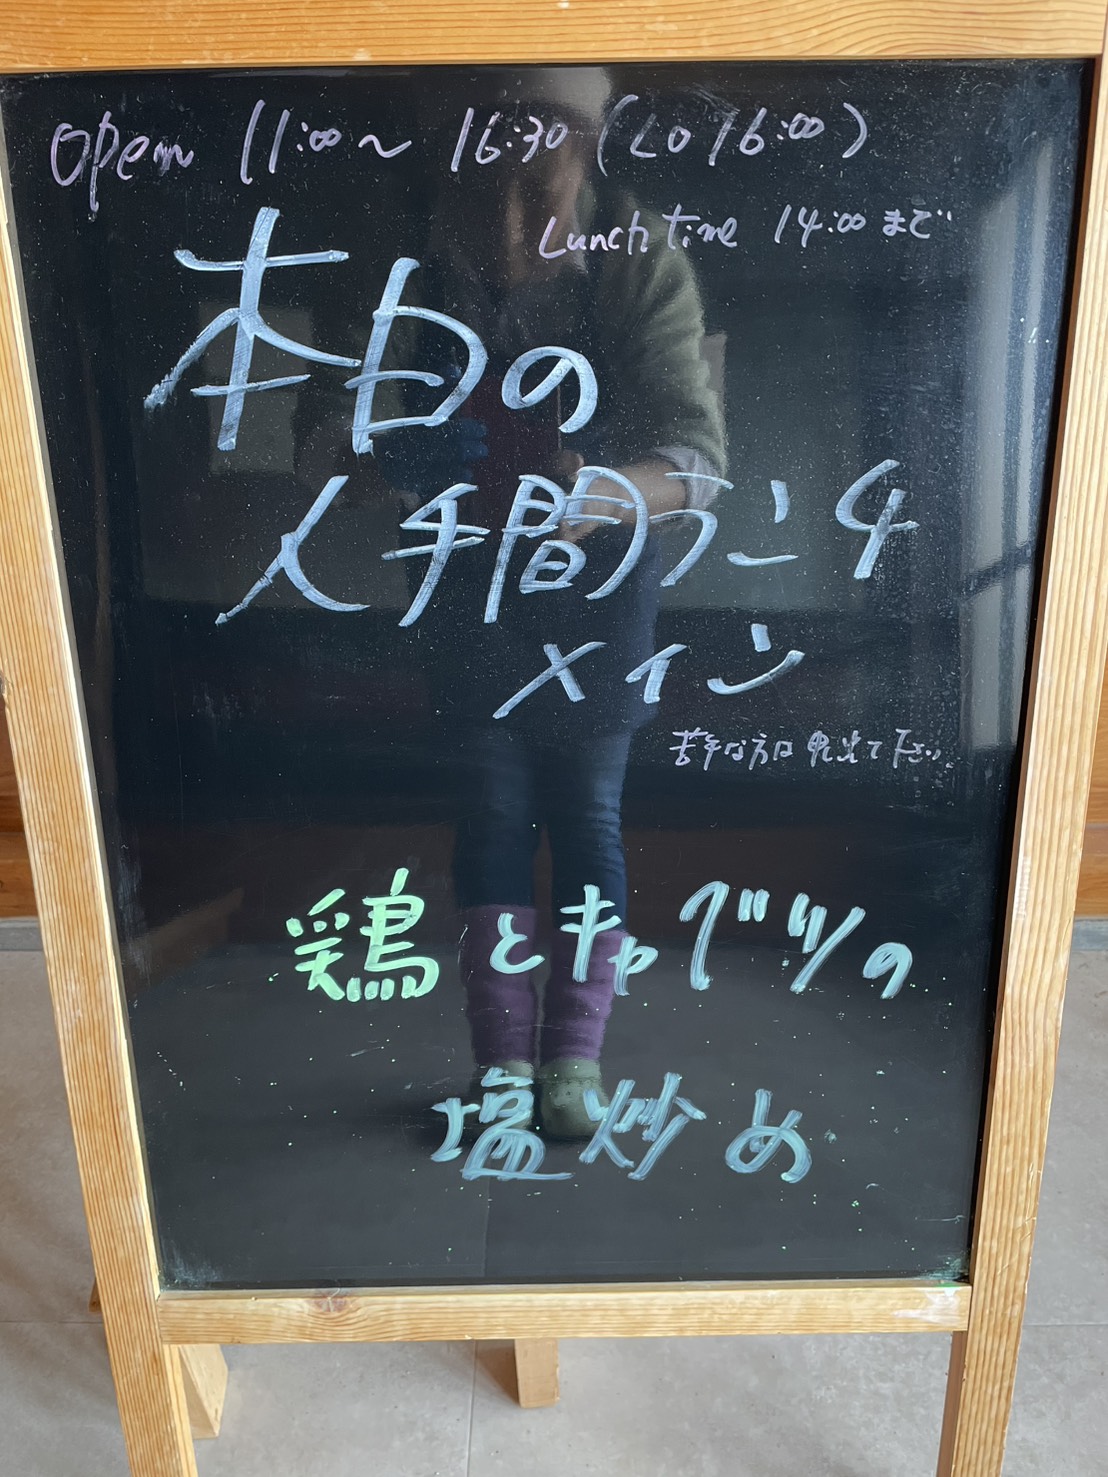 open 11:00〜16:30(LO 16:00)
Lunch time 14:00 まで
本日の
人チ間ランチ
メイン
苦手な方は申し出て下さい
鶏とキャベツの
塩炒め